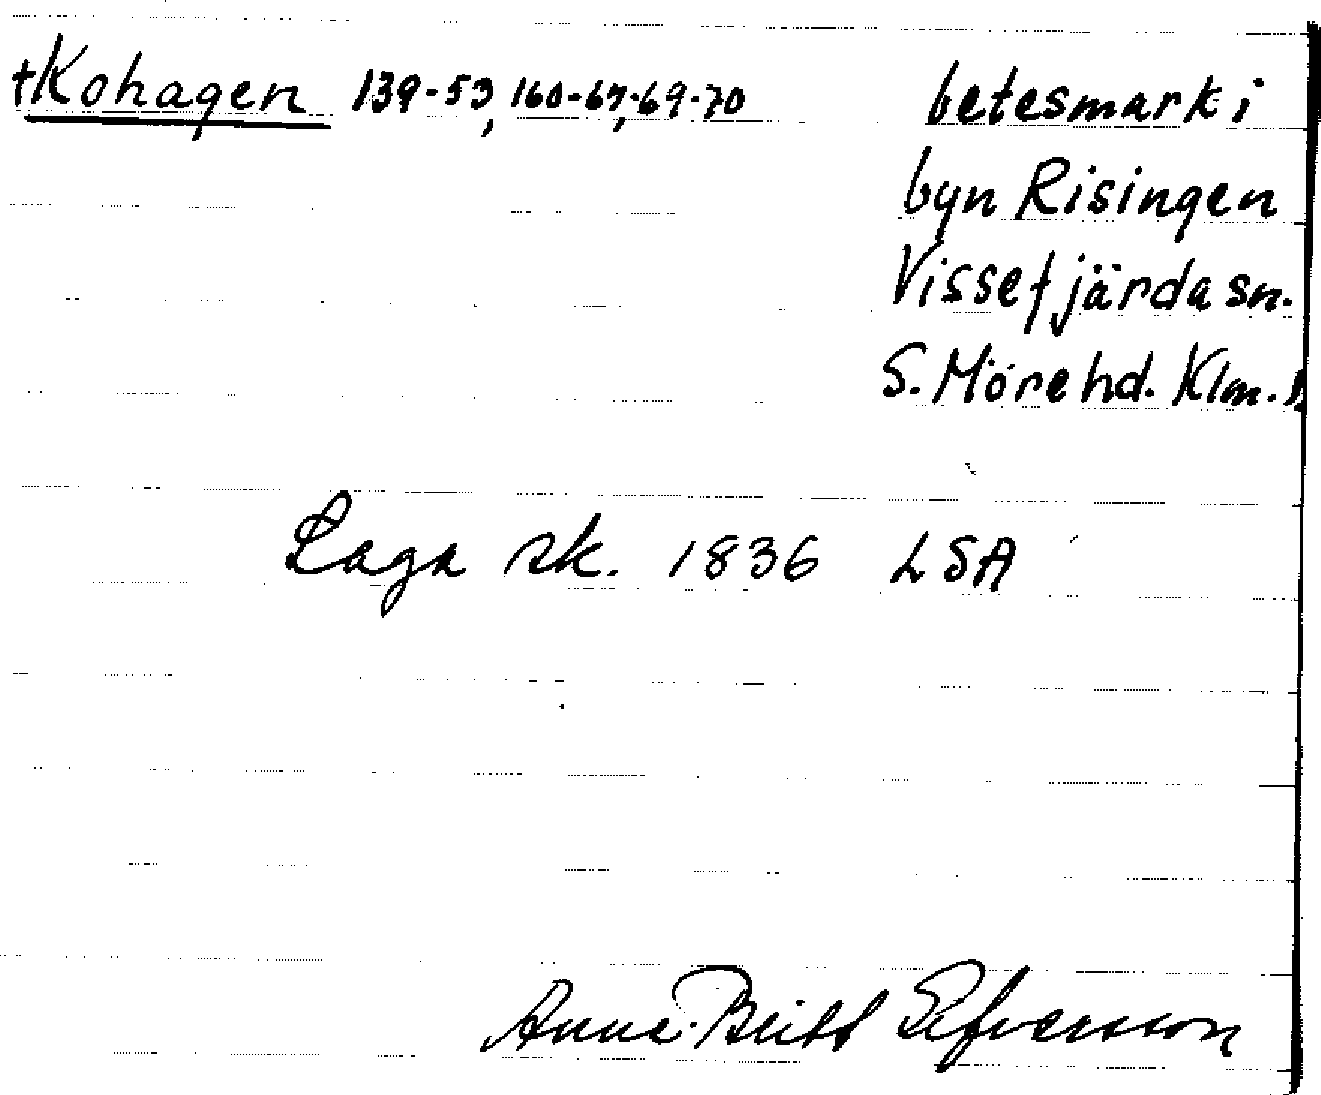 †Kohagen 139-53, 160-67, 69-70 betesmark i
byn Risingen
Vissefjärda sn.
S. Möre hd. Klm.
Laga sk. 1836 LSA
Anna-Britt Elfversson